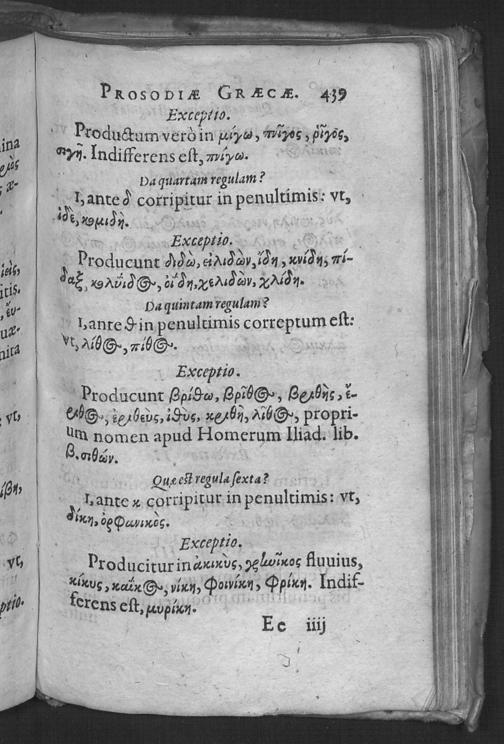 PROSODIÆ GRÆCÆ. 439
Exceptio.
Productum verò in μίγω, πνῖγος, ῥῖγος,
σιγή. Indifferens est, πνίγω.
Da quartam regulam?
I, ante δ corripitur in penultimis: vt,
ἴδε, κομιδὴ.
Exceptio.
Producunt διδὼ, εἰλιδὼν, ἴδη, κνίδη, πί-
δαξ, κολνΐδος, οἵδη, χελιδὼν, χλίδη.
Da quintam regulam?
I, ante θ in penultimis correptum est:
vt, λίθος, πίθος.
Exceptio.
Producunt βρίθω, βρῖθος, βριθὴς, ἔ-
ριθος, ἐριθεὺς, ἰθὺς, κριθὴ, λῖθος, propri-
um nomen apud Homerum Iliad. lib.
β. σιθών.
Quæ est regula sexta?
I, ante κ corripitur in penultimis: vt,
δίκη, ὀρφανικος.
Exceptio.
Producitur in ἀκικὺς, fluuius,
κίκυς, καΐκος, νίκη, φοινίκη, φρίκη. Indif-
ferens est, μυρίκη.
Ee iiij
ina
ριὸς
æ-
ϊεὶς,
itis.
, ἔυ-
uæ-
nita
; vt,
ίβη,
. vt,
ptio.